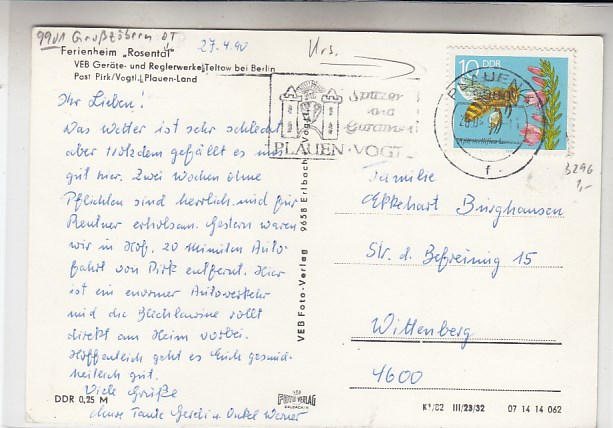 9901 Großzöbern OT
27.4.90
Urs.
Ferienheim „Rosental"
VEB Geräte- und Reglerwerke Teltow bei Berlin
Post Pirk/Vogtl. Plauen-Land
Ihr Lieben!
Das Wetter ist sehr schlecht
aber trotzdem gefällt es uns
gut hier. Zwei Wochen ohne
Pflichten sind herrlich und für
Rentner erholsam. Gestern waren
wir in Hof. 20 Minuten Auto-
fahrt von Pirk entfernt. Hier
ist ein enormer Autoverkehr
und die Blechlawine rollt
direkt am Heim vorbei.
Hoffentlich geht es Euch gesund-
heitlich gut.
Viele Grüße
Tante Gerdi u. Onkel Werner
DDR 0,25 M
VEB Foto-Verlag 9658 Erlbach Vogtl.
VEB
FOTO VERLAG
ERLBACH
Spitzen
und
Gardinen
PLAUEN·VOGT
10 DDR
PLAUEN
f
3296
1,-
Familie
Ekkehart Burghausen
Str. d. Befreiung 15
Wittenberg
4600
K1/82 III/23/32 07 14 14 062